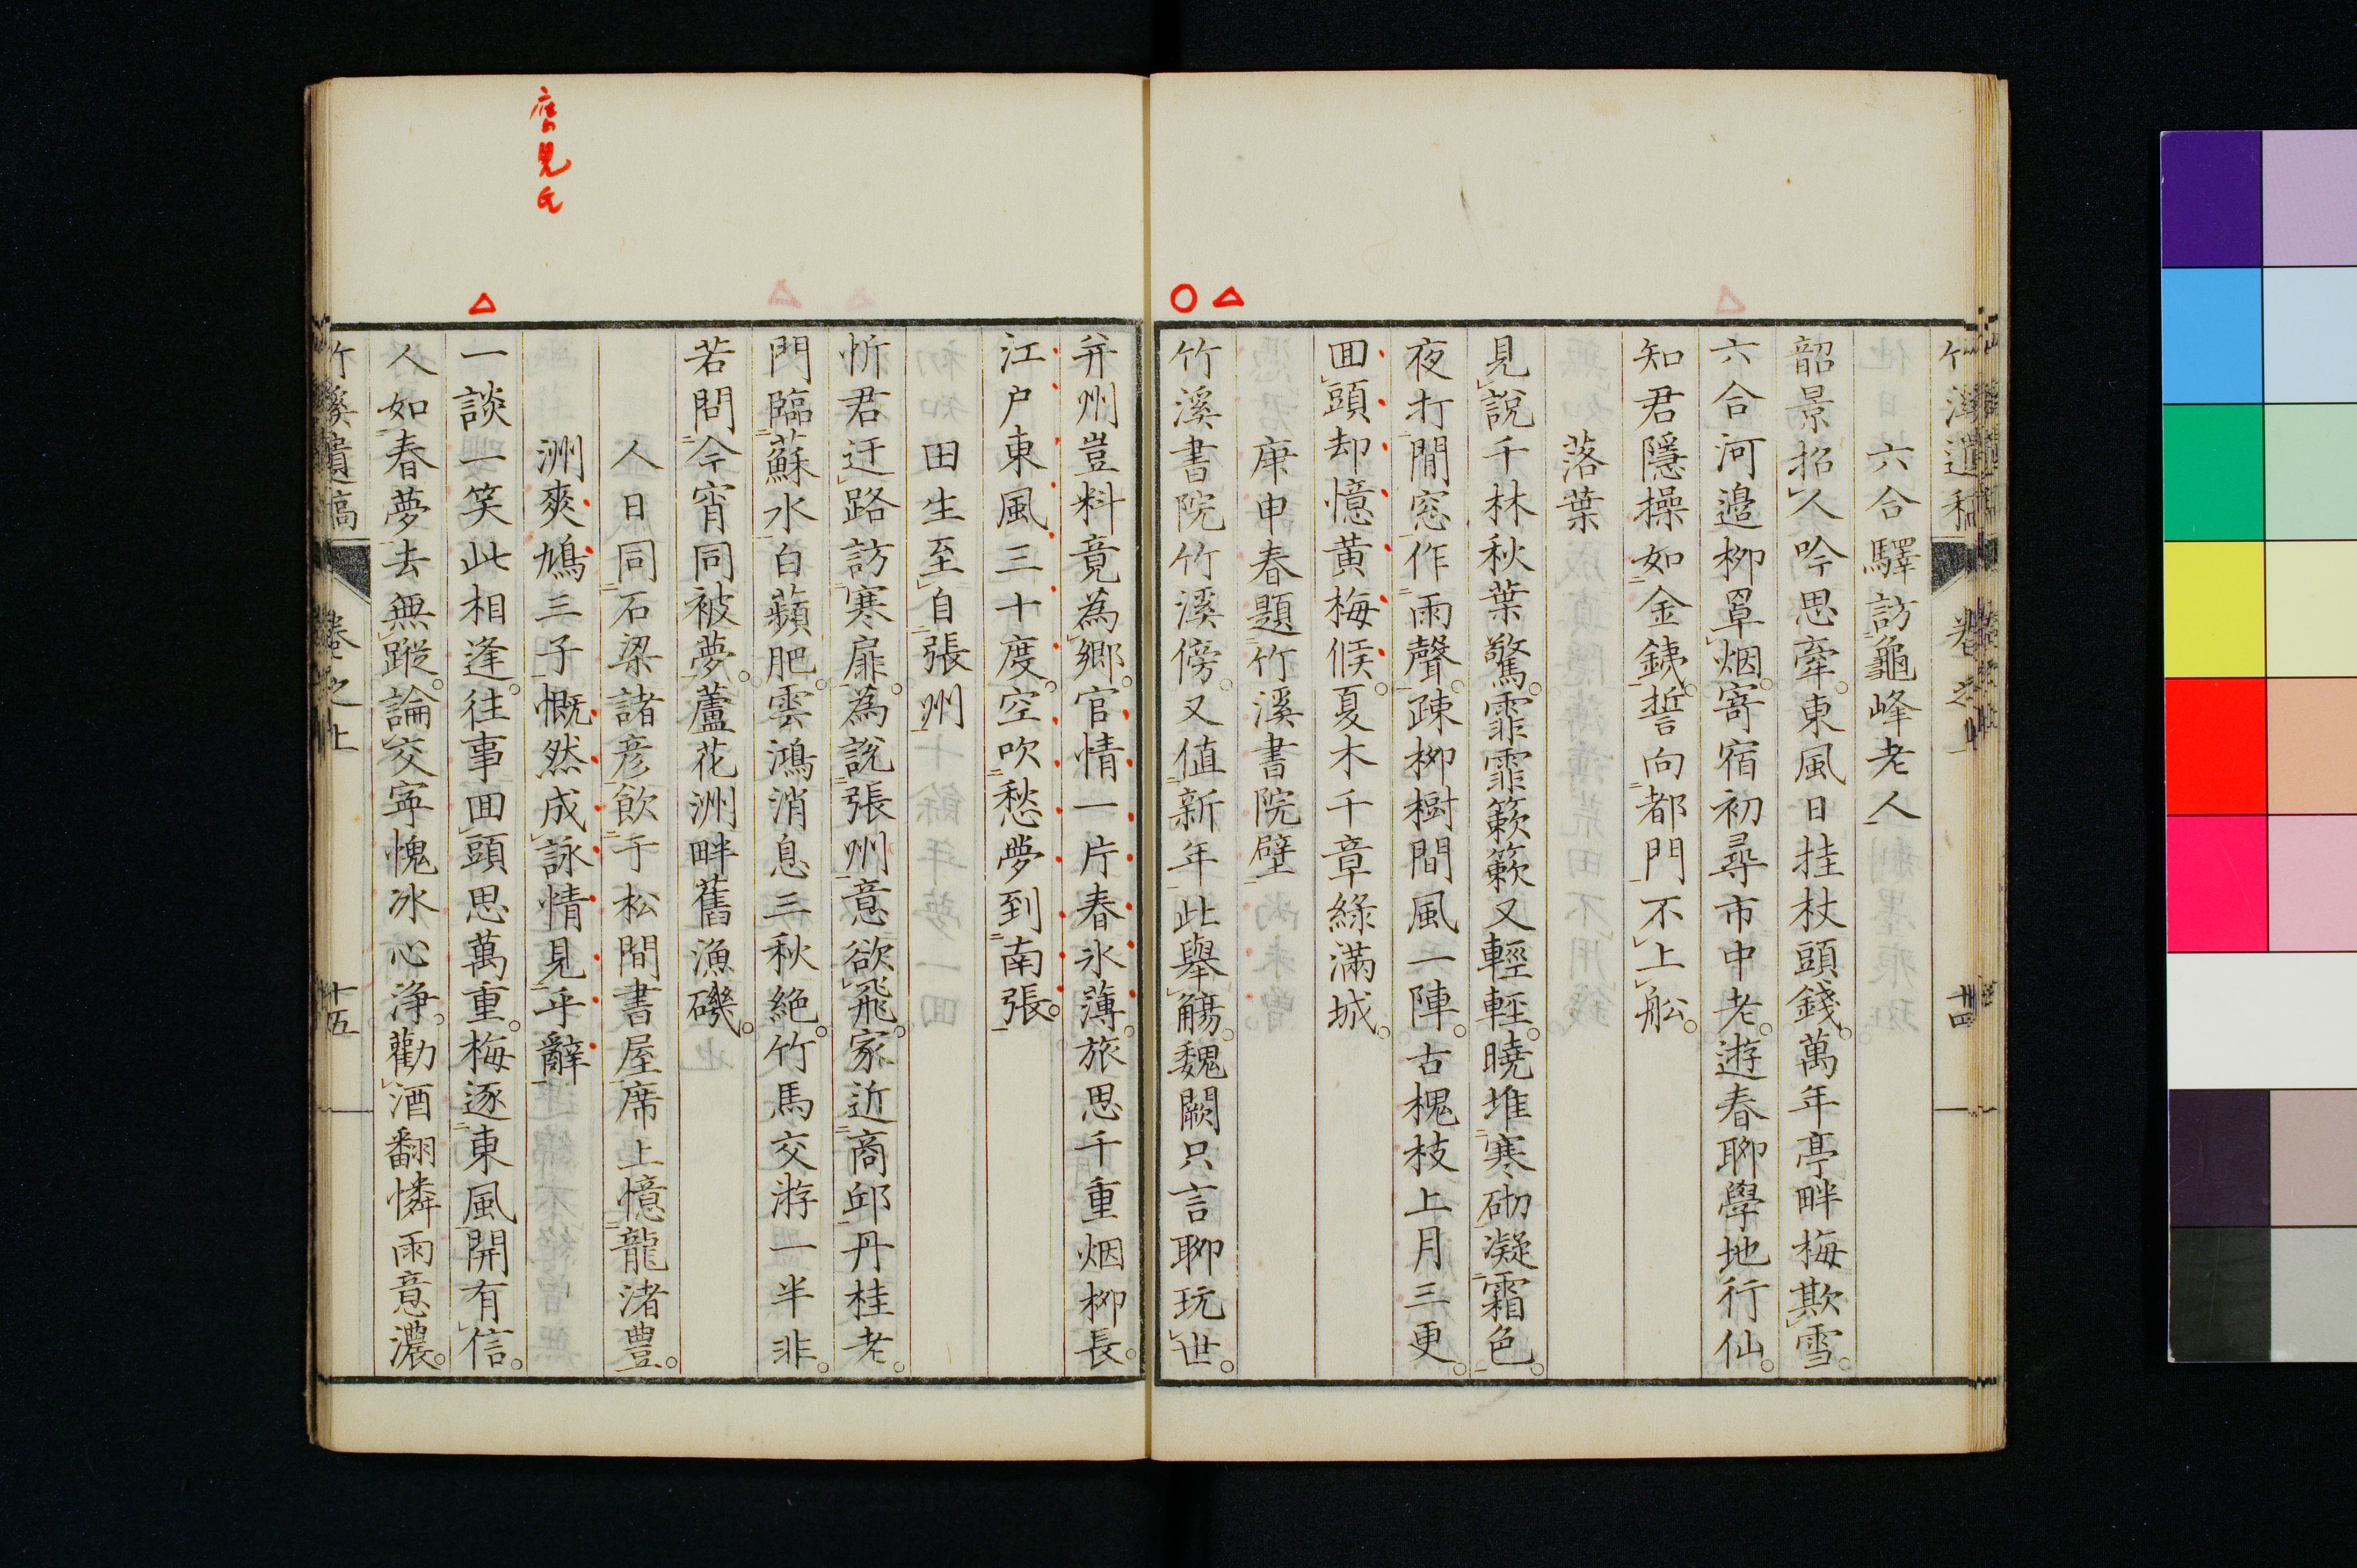 竹溪遺稿 卷之上 十四
六合驛訪龜峰老人
韶景招人吟思牽東風日挂杖頭錢萬年亭畔梅欺雪
六合河邉柳罩烟寄宿初尋市中老遊春聊學地行仙
知君隱操如金鐵誓向都門不上船
落葉
見說千林秋葉驚霏霏簌簌又輕輕曉堆寒砌凝霜色
夜打閒窓作雨聲疎柳樹間風一陣古槐枝上月三更
回頭却憶黃梅候夏木千章綠滿城
庚申春題竹溪書院壁
竹溪書院竹溪傍又值新年此舉觴魏闕只言聊玩世
并州豈料竟為鄉官情一片春氷薄旅思千重烟柳長
江戸東風三十度空吹愁夢到南張
田生至自張州
忻君迂路訪寒扉為說張州意欲飛家近商邱丹桂老
門臨蘇水白蘋肥雲鴻消息三秋絶竹馬交游一半非
若問今宵同被夢蘆花洲畔舊漁磯
人日同石梁諸彦飲于松間書屋席上憶龍渚豊
洲爽鳩三子慨然成詠情見乎辭
一談一笑此相逢往事回頭思萬重梅逐東風開有信
人如春夢去無蹤論交寧愧冰心淨勸酒翻憐雨意濃
竹溪遺稿 卷之上 十五